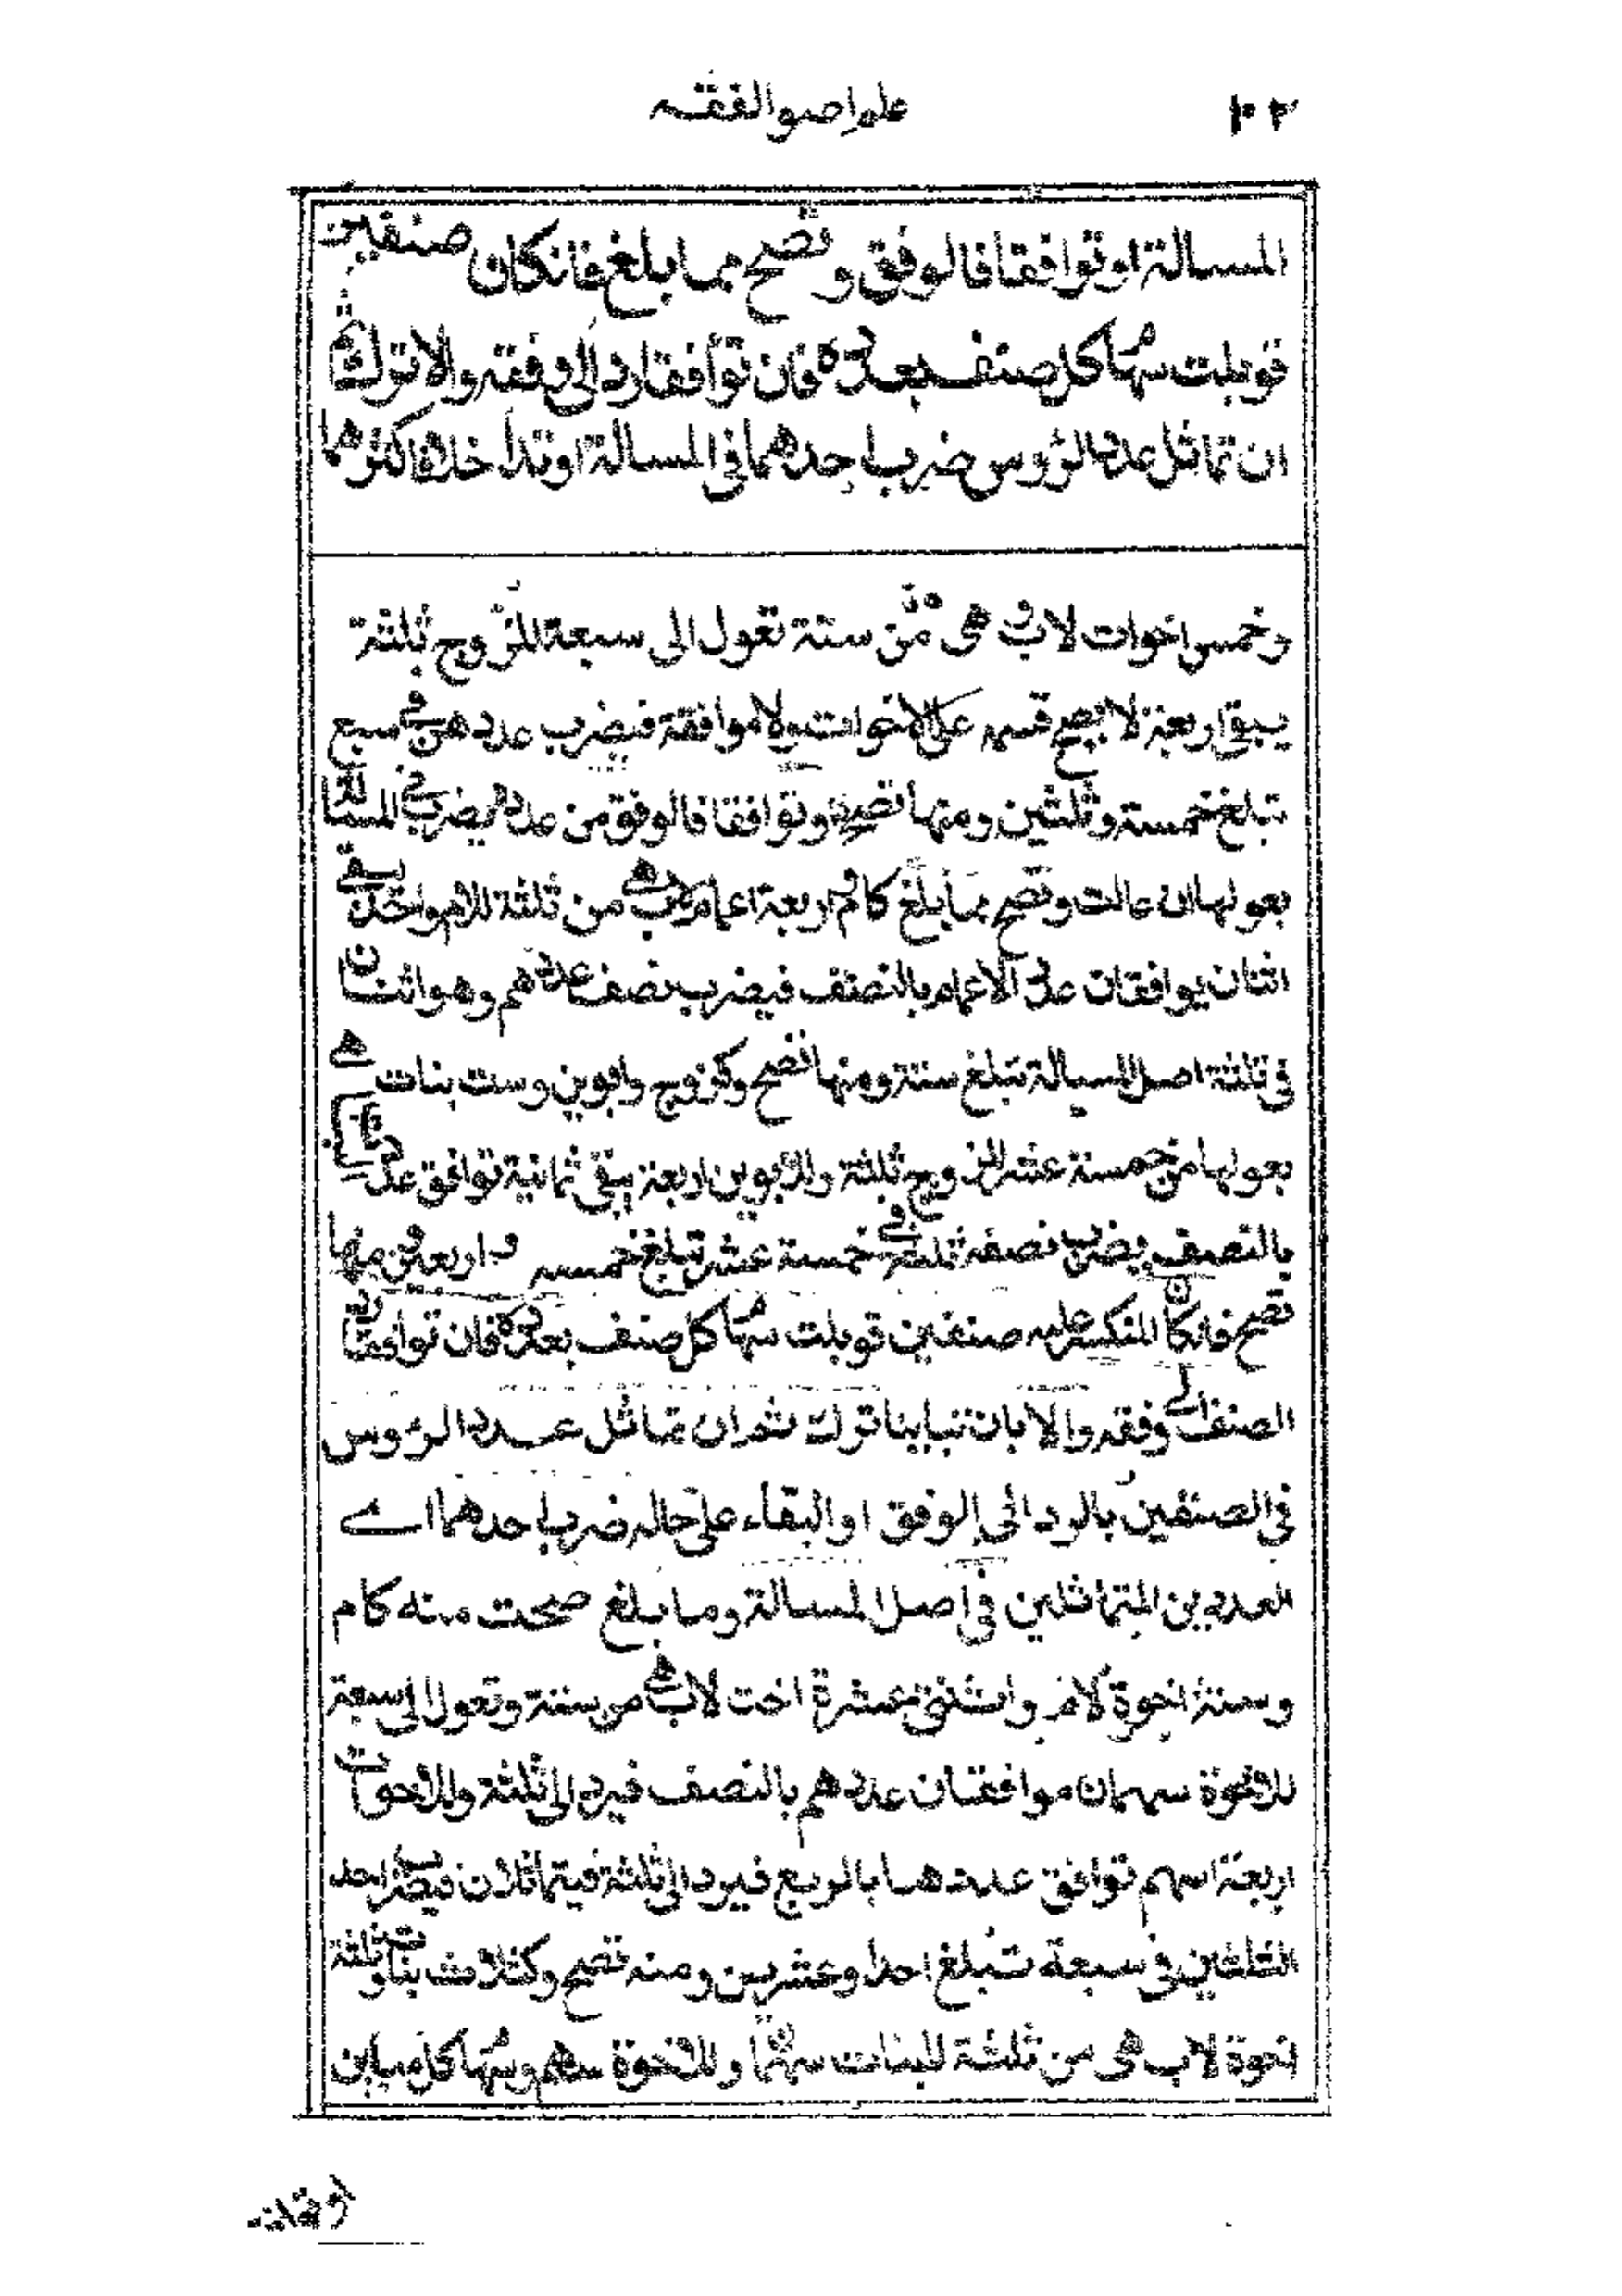 ١٠٢ علم اصول الفقه
المسالة او توافقا فالوفق وتصح مما بلغ فانكان صنفين
قوبلت سهام كل صنف بعدده فان توافقا رد الى وفقه والا ترك ثم
ان تماثل عدد الرؤوس ضرب احدهما فى المسالة او تداخلا فاكثرهما
وخمس اخوات لاب هى من ستة تعول الى سبعة للزوج ثلثة
يبقى اربعة لا يصح قسمه على الاخوات ولا موافقة فيضرب عددهن فى سبع
تبلغ خمسة وثلثين ومنها تصح او توافقا فالوفق من عدده يضرب فى المسالة
بعولها ان عالت وتصح مما بلغ كام واربعة اعمام لاب هى من ثلثة للام واحد يبقى
اثنان يوافقان على الاعمام بالنصف فيضرب نصف عددهم وهو اثنان
فى ثلثة اصل المسالة تبلغ ستة ومنها تصح وكزوج وابوين وست بنات هى
بعولها من خمسة عشر للزوج ثلثة وللابوين اربعة يبقى ثمانية توافق عدد
بالنصف يضرب نصفه ثلثة فى خمسة عشر تبلغ خمسه واربعين منها
تصح فانكان المنكسر عليه صنفين قوبلت سهام كل صنف بعدده فان توافقا رد
الصنف الى وفقه والا بان تباينا ترك ثم ان تماثل عدد الرؤس
فى الصنفين بالرد الى الوفق او البقاء على حاله ضرب احدهما اے
العددين المتماثلين فى اصل المسالة وما بلغ صحت منه كام
وستة اخوة لام واثنتى عشرة اخت لاب هى من ستة وتعول الى سبعة
للاخوة سهمان موافقان عددهم بالنصف فيرد الى ثلثة وللاخوات
اربعة اسهم توافق عددها بالربع فيرد الى ثلثة فيتماثلان فيضرب احد
الثلثين فى سبعة تبلغ احدا وعشرين ومنه تصح وكثلاث بنات وثلثة
اخوة لاب هى من ثلثة للبنات سهمان وللاخوة سهم وسهام كل مباين